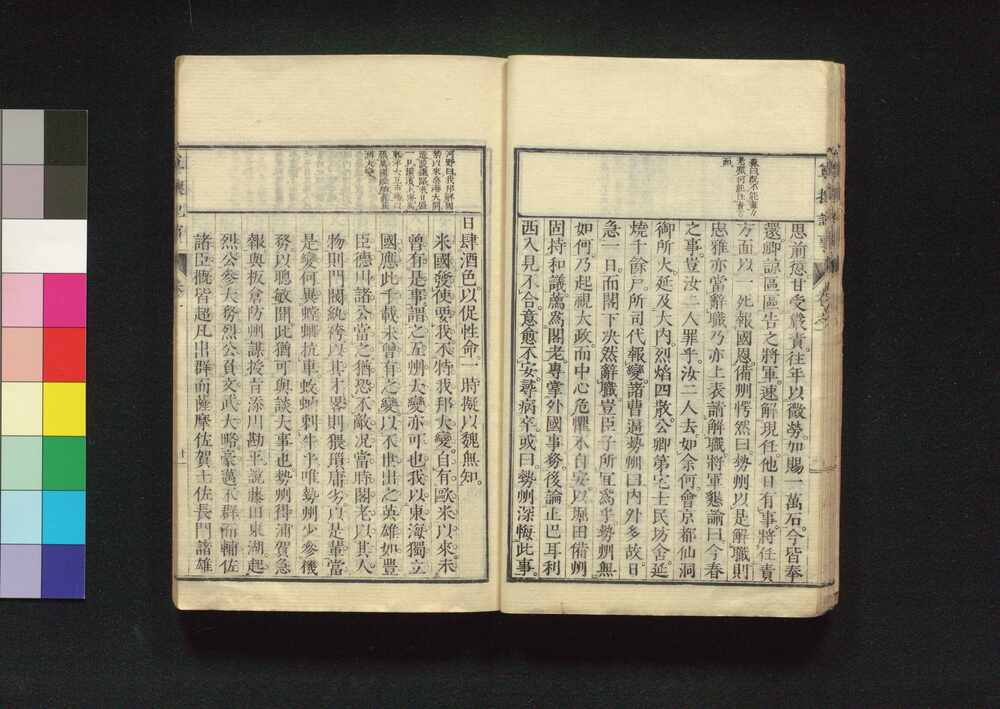 思前愆甘受嚴責往年以微勞加賜一萬石今皆奉
還卿諒區區告之將軍速解現任他日有事將任責
方面以一死報國恩備州愕然曰勢州以是解職則
忠雅亦當辭職乃亦上表請解職將軍懇諭曰今春
之事豈汝二人罪乎汝二人去如余何會京都仙洞
御所火延及大內烈焰四散公卿第宅士民坊舍延
燒千餘戶所司代報變諸曹逼勢州曰內外多故日
急一日而閣下決然辭職豈臣子所宜為乎勢州無
如何乃起視大政而中心危懼不自安以堀田備州
固持和議薦為閣老專掌外國事務後論正巳耳利
西入見不合意愈不安尋病卒或曰勢州深悔此事
日肆酒色以促性命一時擬以魏無知
米國發使要我不特我邦大變自有歐米以來未
曾有是事謂之五州大變亦可也我以東海獨立
國應此千載未曾有之變以不世出之英雄如豐
臣德川諸公當之猶恐不敵况當時閣老以其人
物則門閥紈袴以其才畧則猥瑣庸劣以是輩當
是變何異螳螂抗車蚊蚋刺牛乎唯勢州少參機
務以聰敏聞此猶可與談大事也勢州得浦賀急
報與板倉防州謀授旨添川勘平說藤田東湖起
烈公參大務烈公負文武大略豪邁不群而輔佐
諸臣慨皆超凡出群而薩摩佐賀土佐長門諸雄